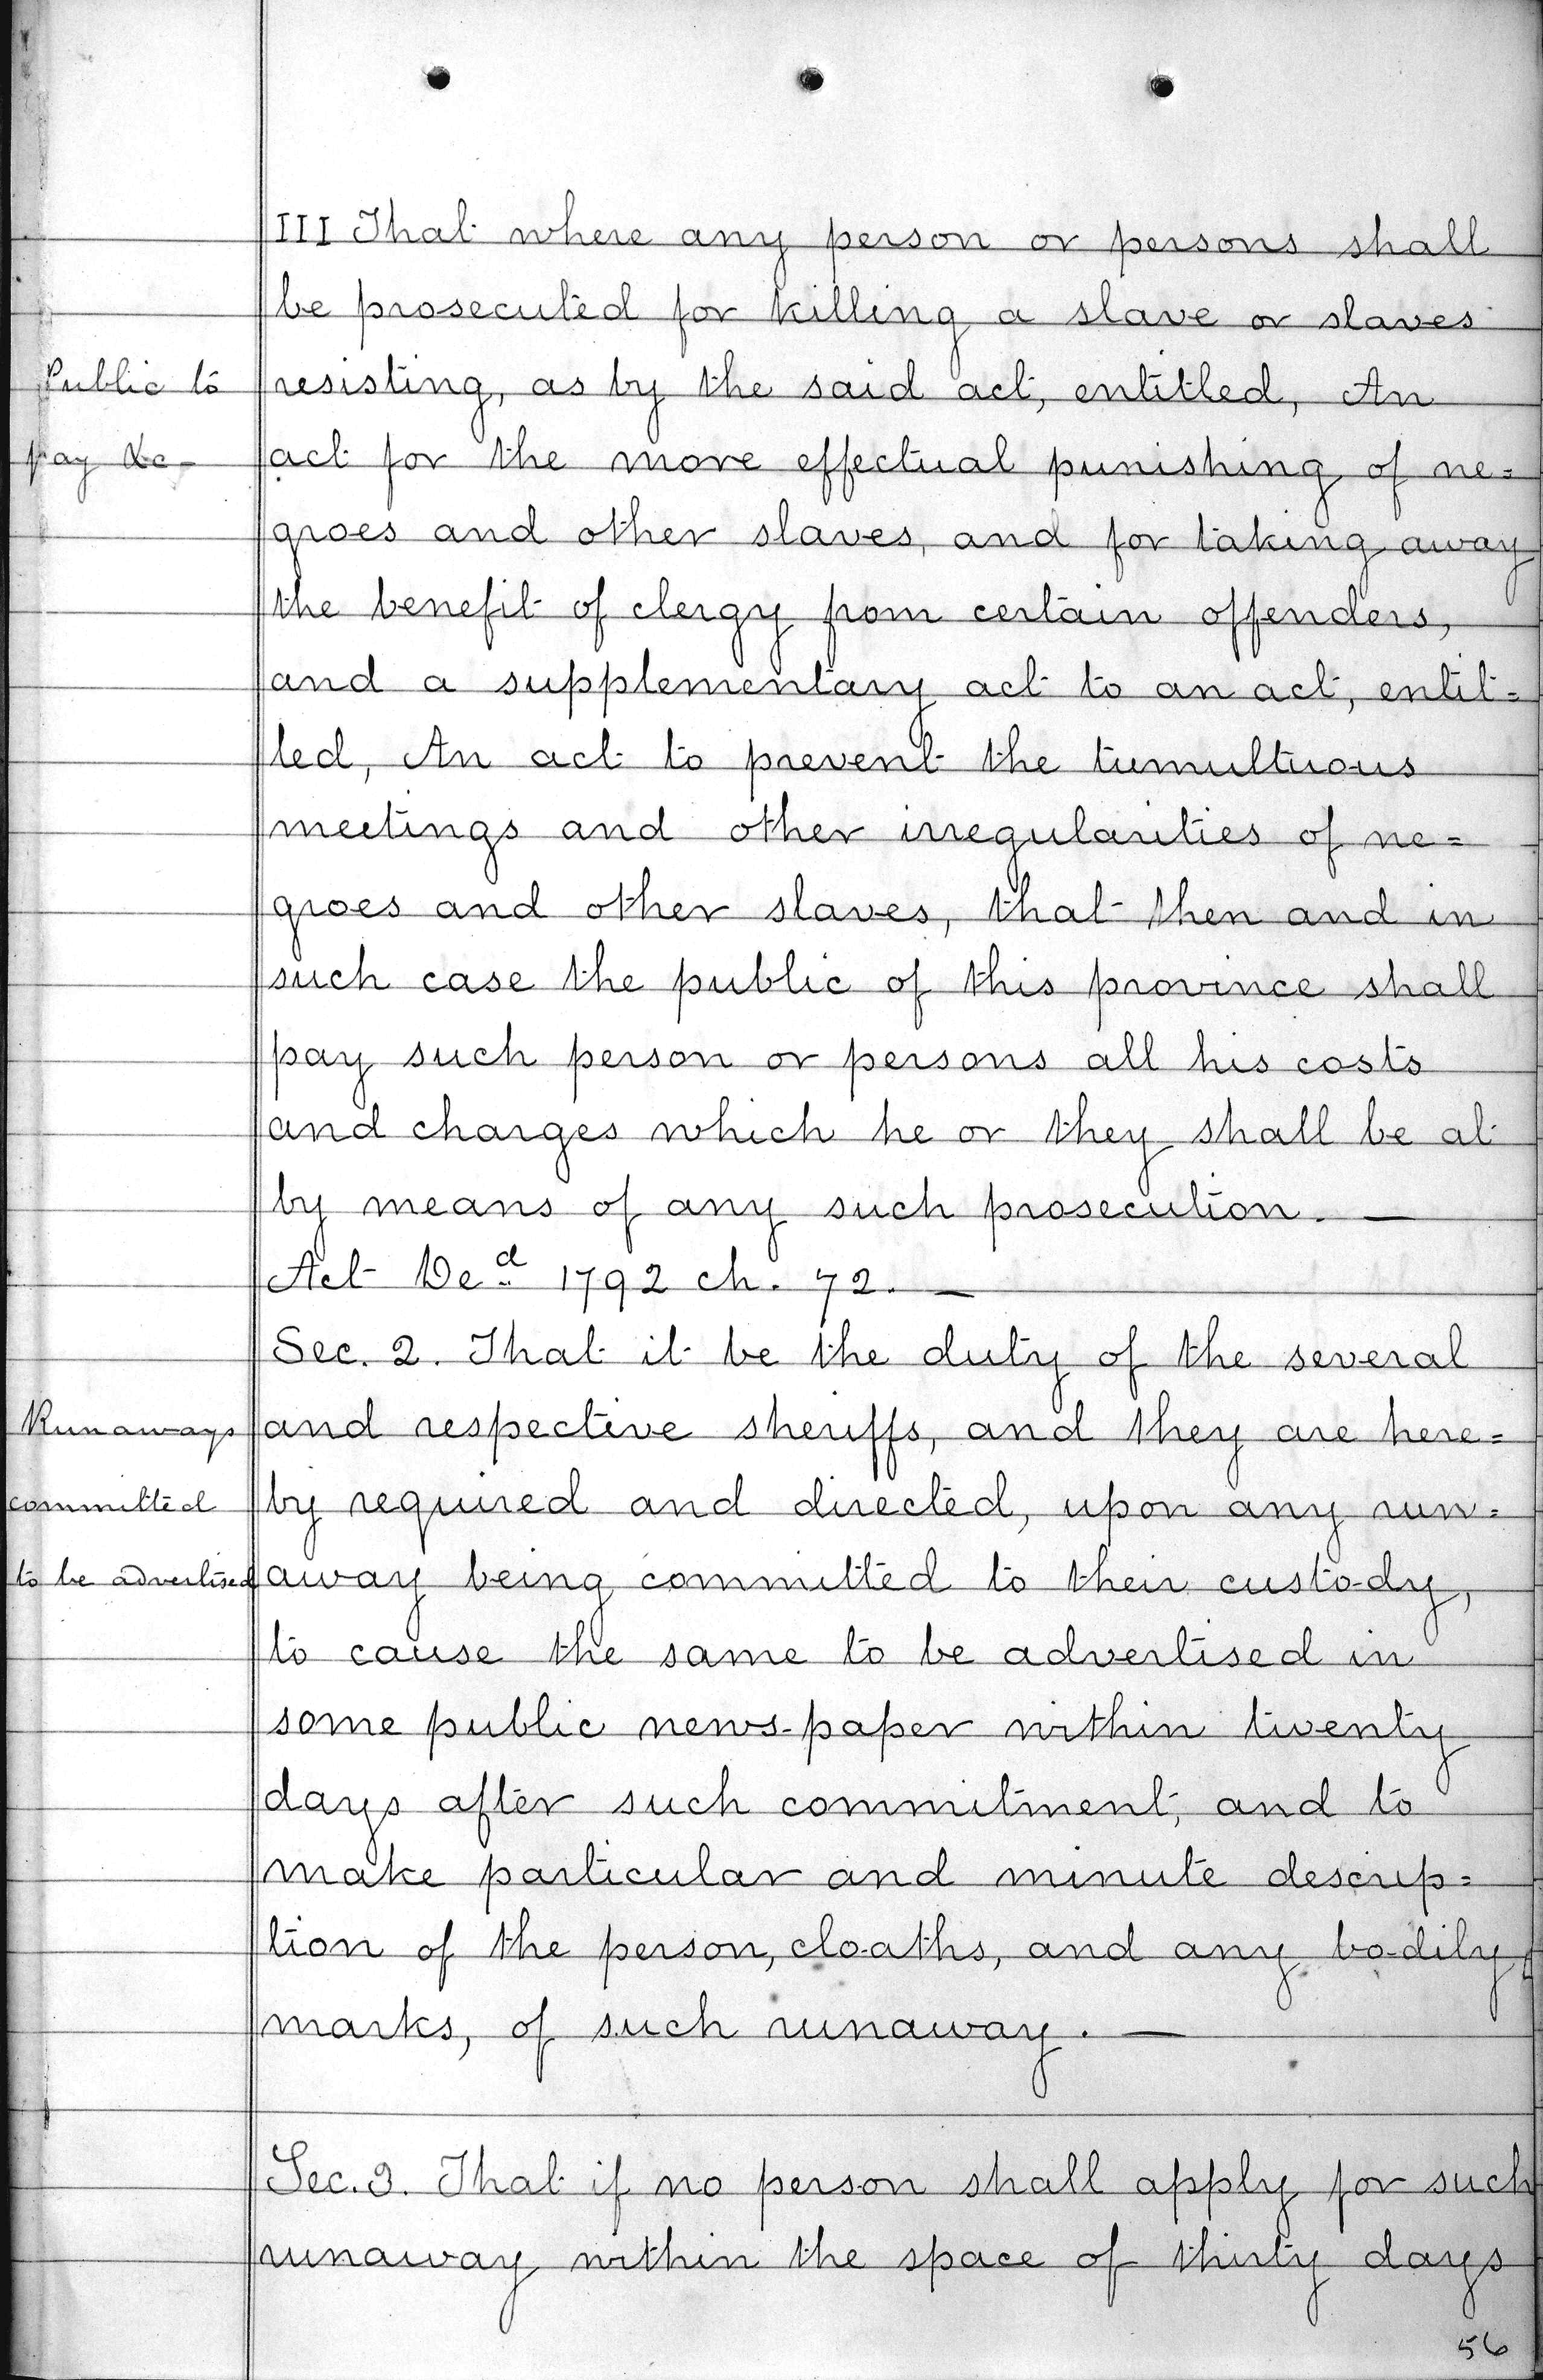 III That where any person or persons shall
be prosecuted for killing a slave or slaves
Public to
resisting, as by the said act, entitled, An
pay &c-
act for the more effectual punishing of ne=
groes and other slaves, and for taking away
the benefit of clergy from certain offenders,
and a supplementary act to an act, entit=
led, An act to prevent the tumultuous
meetings and other irregularities of ne=
groes and other slaves, that then and in
such case the public of this province shall
pay such person or persons all his costs
and charges which he or they shall be at
by means of any such prosecution. —
Act Decd 1792 ch. 72. —
Sec. 2. That it be the duty of the several
Runaways
and respective sheriffs, and they are here=
committed
by required and directed, upon any run=
to be advertised
away being committed to their custody,
to cause the same to be advertised in
some public news-paper within twenty
days after such commitment, and to
make particular and minute descrip=
tion of the person, cloaths, and any bodily
marks, of such runaway. —
Sec. 3. That if no person shall apply for such
runaway within the space of thirty days
56